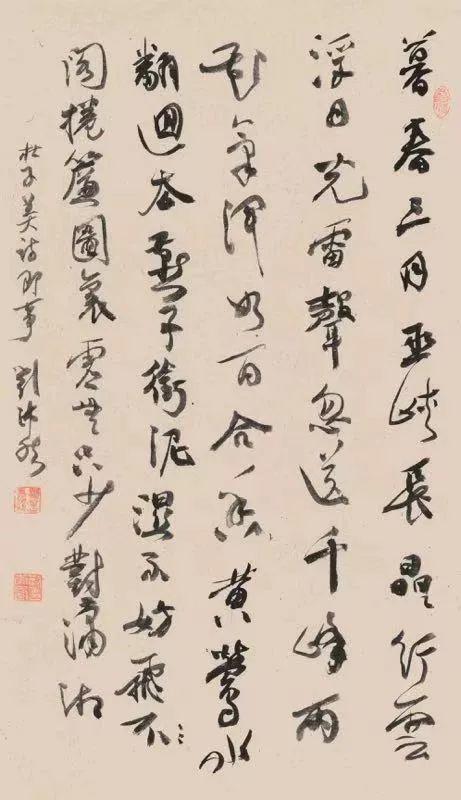 暮春三月巫峽長晶行雲
浮日光雷聲忽送千峰雨
花氣渾如百合香黃鶯水
翻迴去燕子銜泥濕不妨飛不
閣捲簾圖裏虛無只少對瀟湘
杜子美詩即事 劉